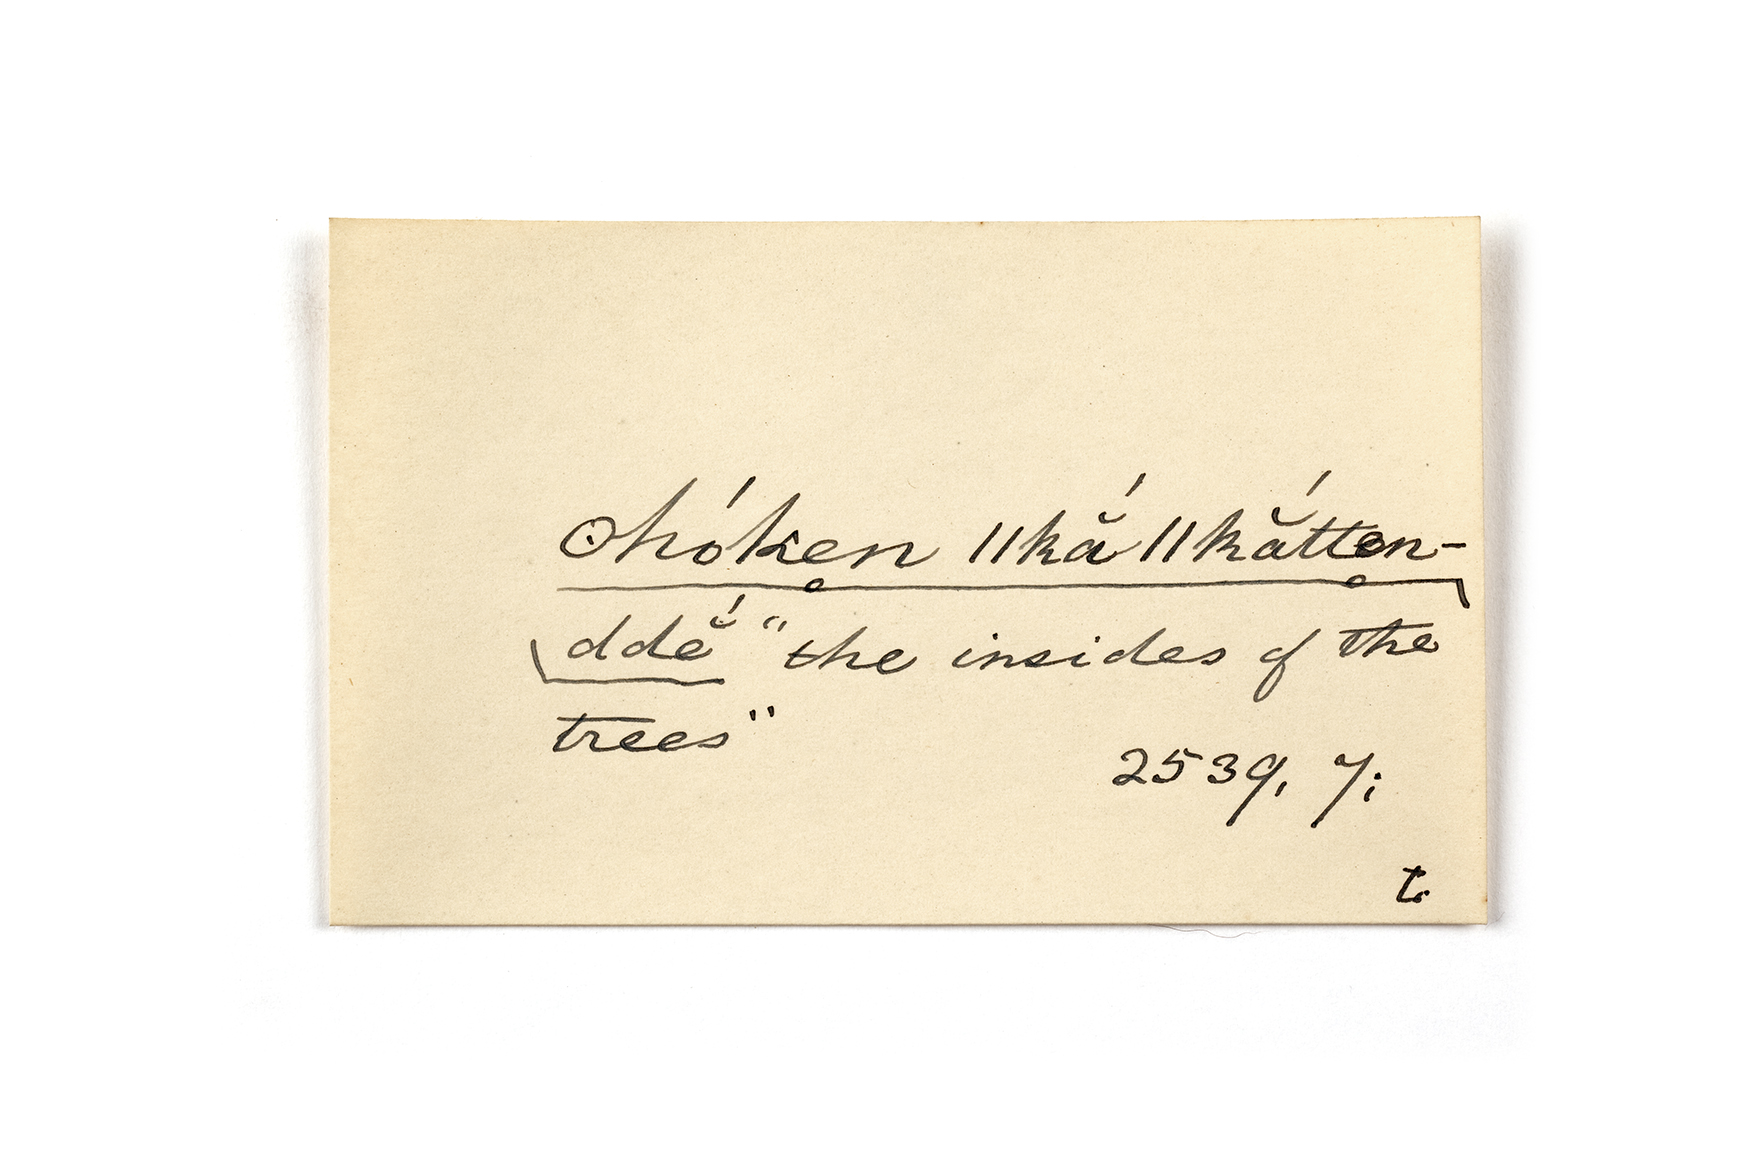 ʘhóken ǁkắ ǁkắtten-
ddĕ́ "the insides of the
trees"
2539, 7;
t.